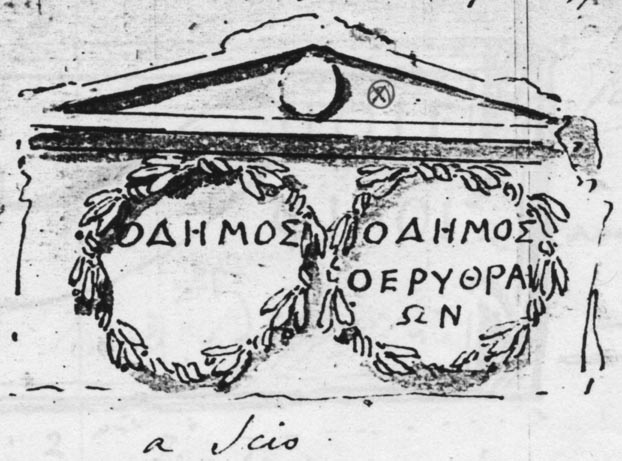 ΟΔΗΜΟΣ
ΟΔΗΜΟΣ
ΟΕΡΥΘΡΑΙ
ΩΝ
a Scio